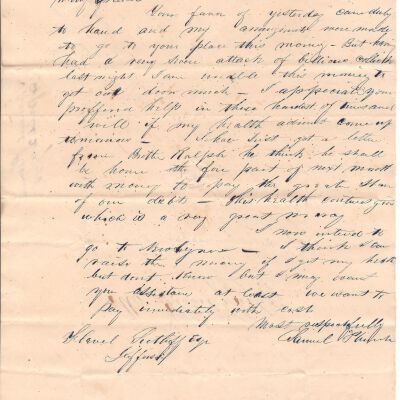 Your favor of yesterday came duly
to hand and my arrangements were made
to go to your place this morning - But having
had a very severe attack of billious
last night I am unable this morning to
get out door much - I appreciate your
proffered help in these hardest of times and
will if my health admit come up
tomorrow - I have just got a letter
from Brother Ralph he think he shall
be home the fore part of next month
with money to pay the great share
of our debts - His health continues good
which is a very great mercy
I now intend to
go to - I think I can
raise the money if I get my health
but dont know but I may want
you assistance at least we want to
pay immediately with cost
Most respectfully
Esq